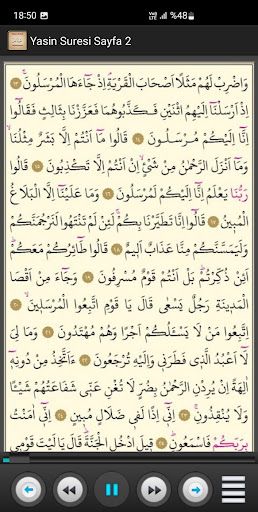 18:50 %48
Yasin Suresi Sayfa 2
وَاضْرِبْ لَهُمْ مَثَلًا اَصْحَابَ الْقَرْيَةِ اِذْ جَٓاءَهَا الْمُرْسَلُونَ ١٣
اِذْ اَرْسَلْنَٓا اِلَيْهِمُ اثْنَيْنِ فَكَذَّبُوهُمَا فَعَزَّزْنَا بِثَالِثٍ فَقَالُٓوا
اِنَّٓا اِلَيْكُمْ مُرْسَلُونَ ١٤ قَالُوا مَٓا اَنْتُمْ اِلَّا بَشَرٌ مِثْلُنَا
وَمَٓا اَنْزَلَ الرَّحْمٰنُ مِنْ شَيْءٍ اِنْ اَنْتُمْ اِلَّا تَكْذِبُونَ ١٥ قَالُوا
رَبُّنَا يَعْلَمُ اِنَّٓا اِلَيْكُمْ لَمُرْسَلُونَ ١٦ وَمَا عَلَيْنَٓا اِلَّا الْبَلَاغُ
الْمُبِينُ ١٧ قَالُٓوا اِنَّا تَطَيَّرْنَا بِكُمْ لَئِنْ لَمْ تَنْتَهُوا لَنَرْجُمَنَّكُمْ
وَلَيَمَسَّنَّكُمْ مِنَّا عَذَابٌ اَلِيمٌ ١٨ قَالُوا طَٓائِرُكُمْ مَعَكُمْ
اَئِنْ ذُكِّرْتُمْ بَلْ اَنْتُمْ قَوْمٌ مُسْرِفُونَ ١٩ وَجَٓاءَ مِنْ اَقْصَا
الْمَدِينَةِ رَجُلٌ يَسْعٰى قَالَ يَا قَوْمِ اتَّبِعُوا الْمُرْسَلِينَ ٢٠
اِتَّبِعُوا مَنْ لَا يَسْئَلُكُمْ اَجْرًا وَهُمْ مُهْتَدُونَ ٢١ وَمَا لِيَ
لَٓا اَعْبُدُ الَّذِي فَطَرَنِي وَاِلَيْهِ تُرْجَعُونَ ٢٢ ءَاَتَّخِذُ مِنْ دُونِهِٓ
اٰلِهَةً اِنْ يُرِدْنِ الرَّحْمٰنُ بِضُرٍّ لَا تُغْنِ عَنِّي شَفَاعَتُهُمْ شَيْئًا
وَلَا يُنْقِذُونِ ٢٣ اِنِّٓي اِذًا لَفِي ضَلَالٍ مُبِينٍ ٢٤ اِنِّٓي اٰمَنْتُ
بِرَبِّكُمْ فَاسْمَعُونِ ٢٥ قِيلَ ادْخُلِ الْجَنَّةَ قَالَ يَا لَيْتَ قَوْمِي